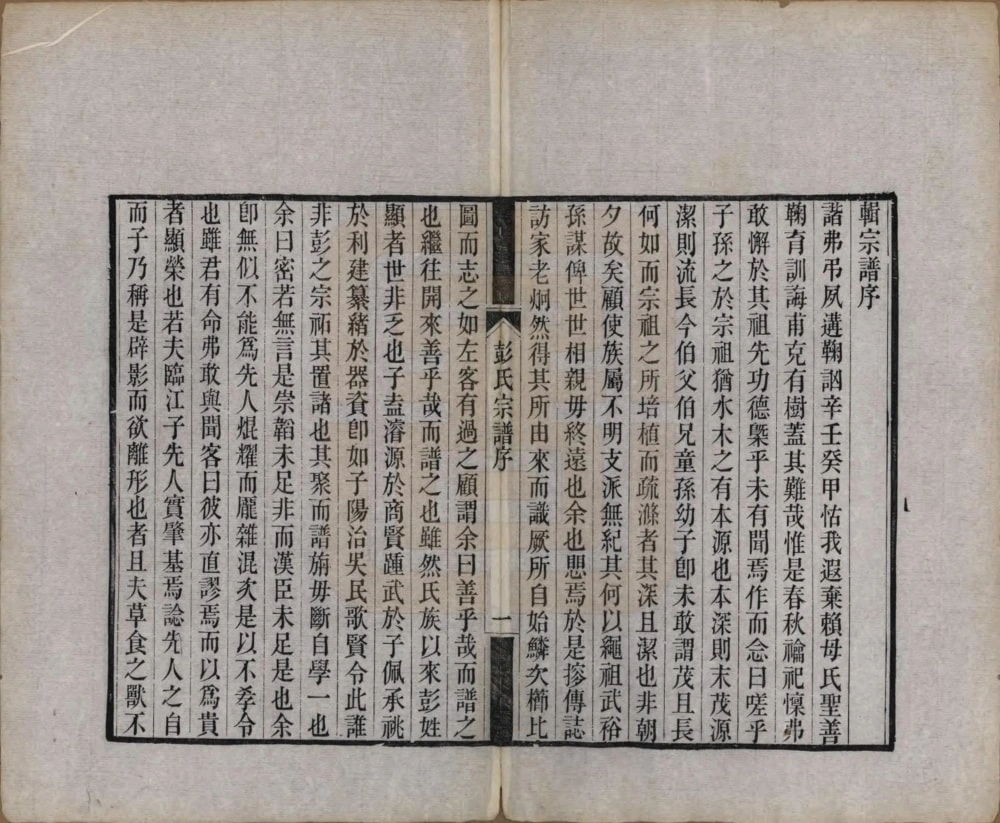 輯宗譜序
諧弗弔夙遘鞠訩辛壬癸甲怙我遐棄賴母氏聖善
鞠育訓誨甫克有樹蓋其難哉惟是春秋禴祀懍弗
敢懈於其祖先功德槩乎未有聞焉作而念曰嗟乎
子孫之於宗祖猶水木之有本源也本深則末茂源
潔則流長今伯父伯兄童孫幼子卽未敢謂茂且長
何如而宗祖之所培植而疏滌者其深且潔也非朝
夕故矣顧使族屬不明支派無紀其何以繩祖武裕
孫謀俾世世相親毋終遠也余也愳焉於是摉傳誌
訪家老炯然得其所由來而識厥所自始鱗次櫛比
彭氏宗譜序
一
圖而志之如左客有過之顧謂余曰善乎哉而譜之
也繼往開來善乎哉而譜之也雖然氏族以來彭姓
顯者世非乏也子盍濬源於商賢踵武於子佩承祧
於利建纂緒於器資卽如子陽治吳民歌賢令此誰
非彭之宗祏其置諸也其聚而譜旃毋斷自學一也
余曰密若無言是祟韜未足非而漢臣未足是也余
卽無似不能爲先人焜耀而龎雜混次是以不孝令
也雖君有命弗敢與聞客曰彼亦直謬焉而以爲貴
者顯榮也若夫臨江子先人實肇基焉諗先人之自
而子乃稱是辟影而欲離形也者且夫草食之獸不